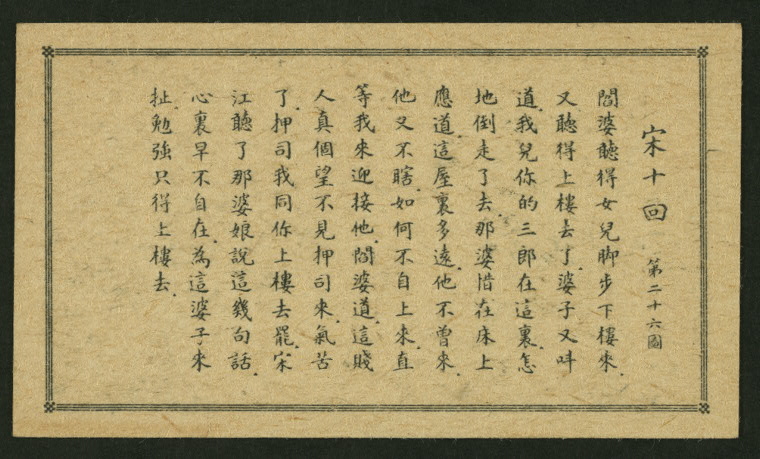 宋十回 第二十六圖
閻婆聽得女兒脚步下樓來.
又聽得上樓去了.婆子又呌
道.我兒你的三郎在這裏.怎
地倒走了去.那婆惜在床上
應道.這屋裏多遠.他不曾來.
他又不瞎.如何不自上來.直
等我來迎接他.閻婆道.這賤
人真個望不見押司來.氣苦
了.押司我同你上樓去罷.宋
江聽了那婆娘說這幾句話.
心裏早不自在.為這婆子來
扯.勉強只得上樓去.